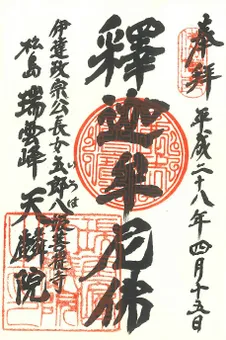 奉拝 平成二十八年四月十五日
釋迦牟尼佛
伊達政宗公長女五郎八姫菩提寺
いろは
松島 瑞雲峰 天麟院